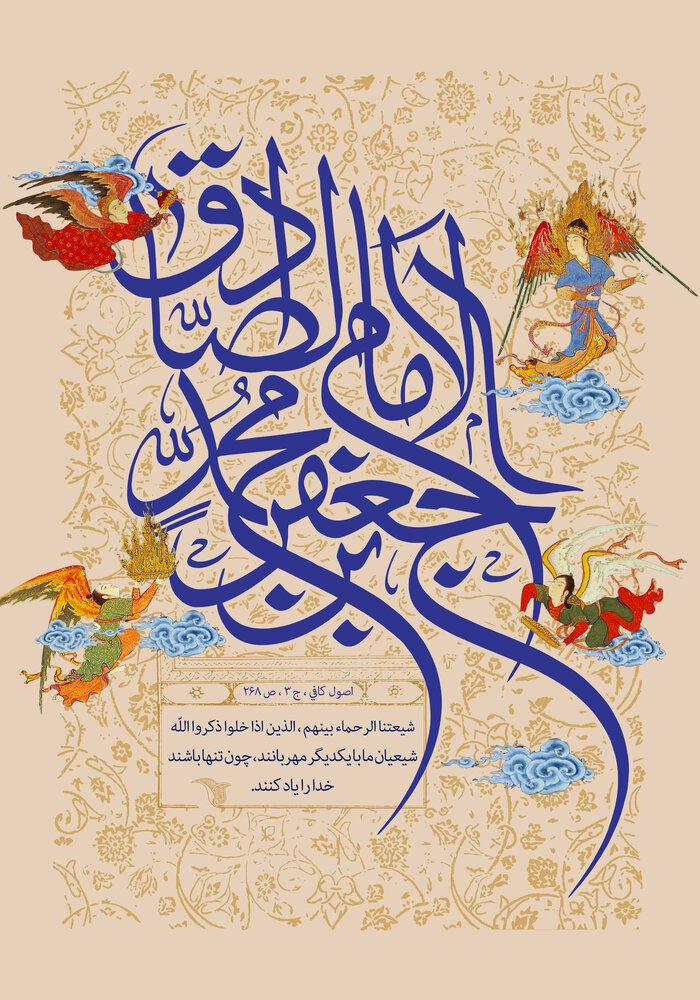 الامام الصّادق
جعفر بن محمدٍ
اصول کافي ، ج ۳ ، ص ۲۶۸
شیعتنا الرحماء بینهم ، الذین اذا خلوا ذکروا اللّه
شیعیان ما با یکدیگر مهربانند، چون تنها باشند
خدا را یاد کنند.